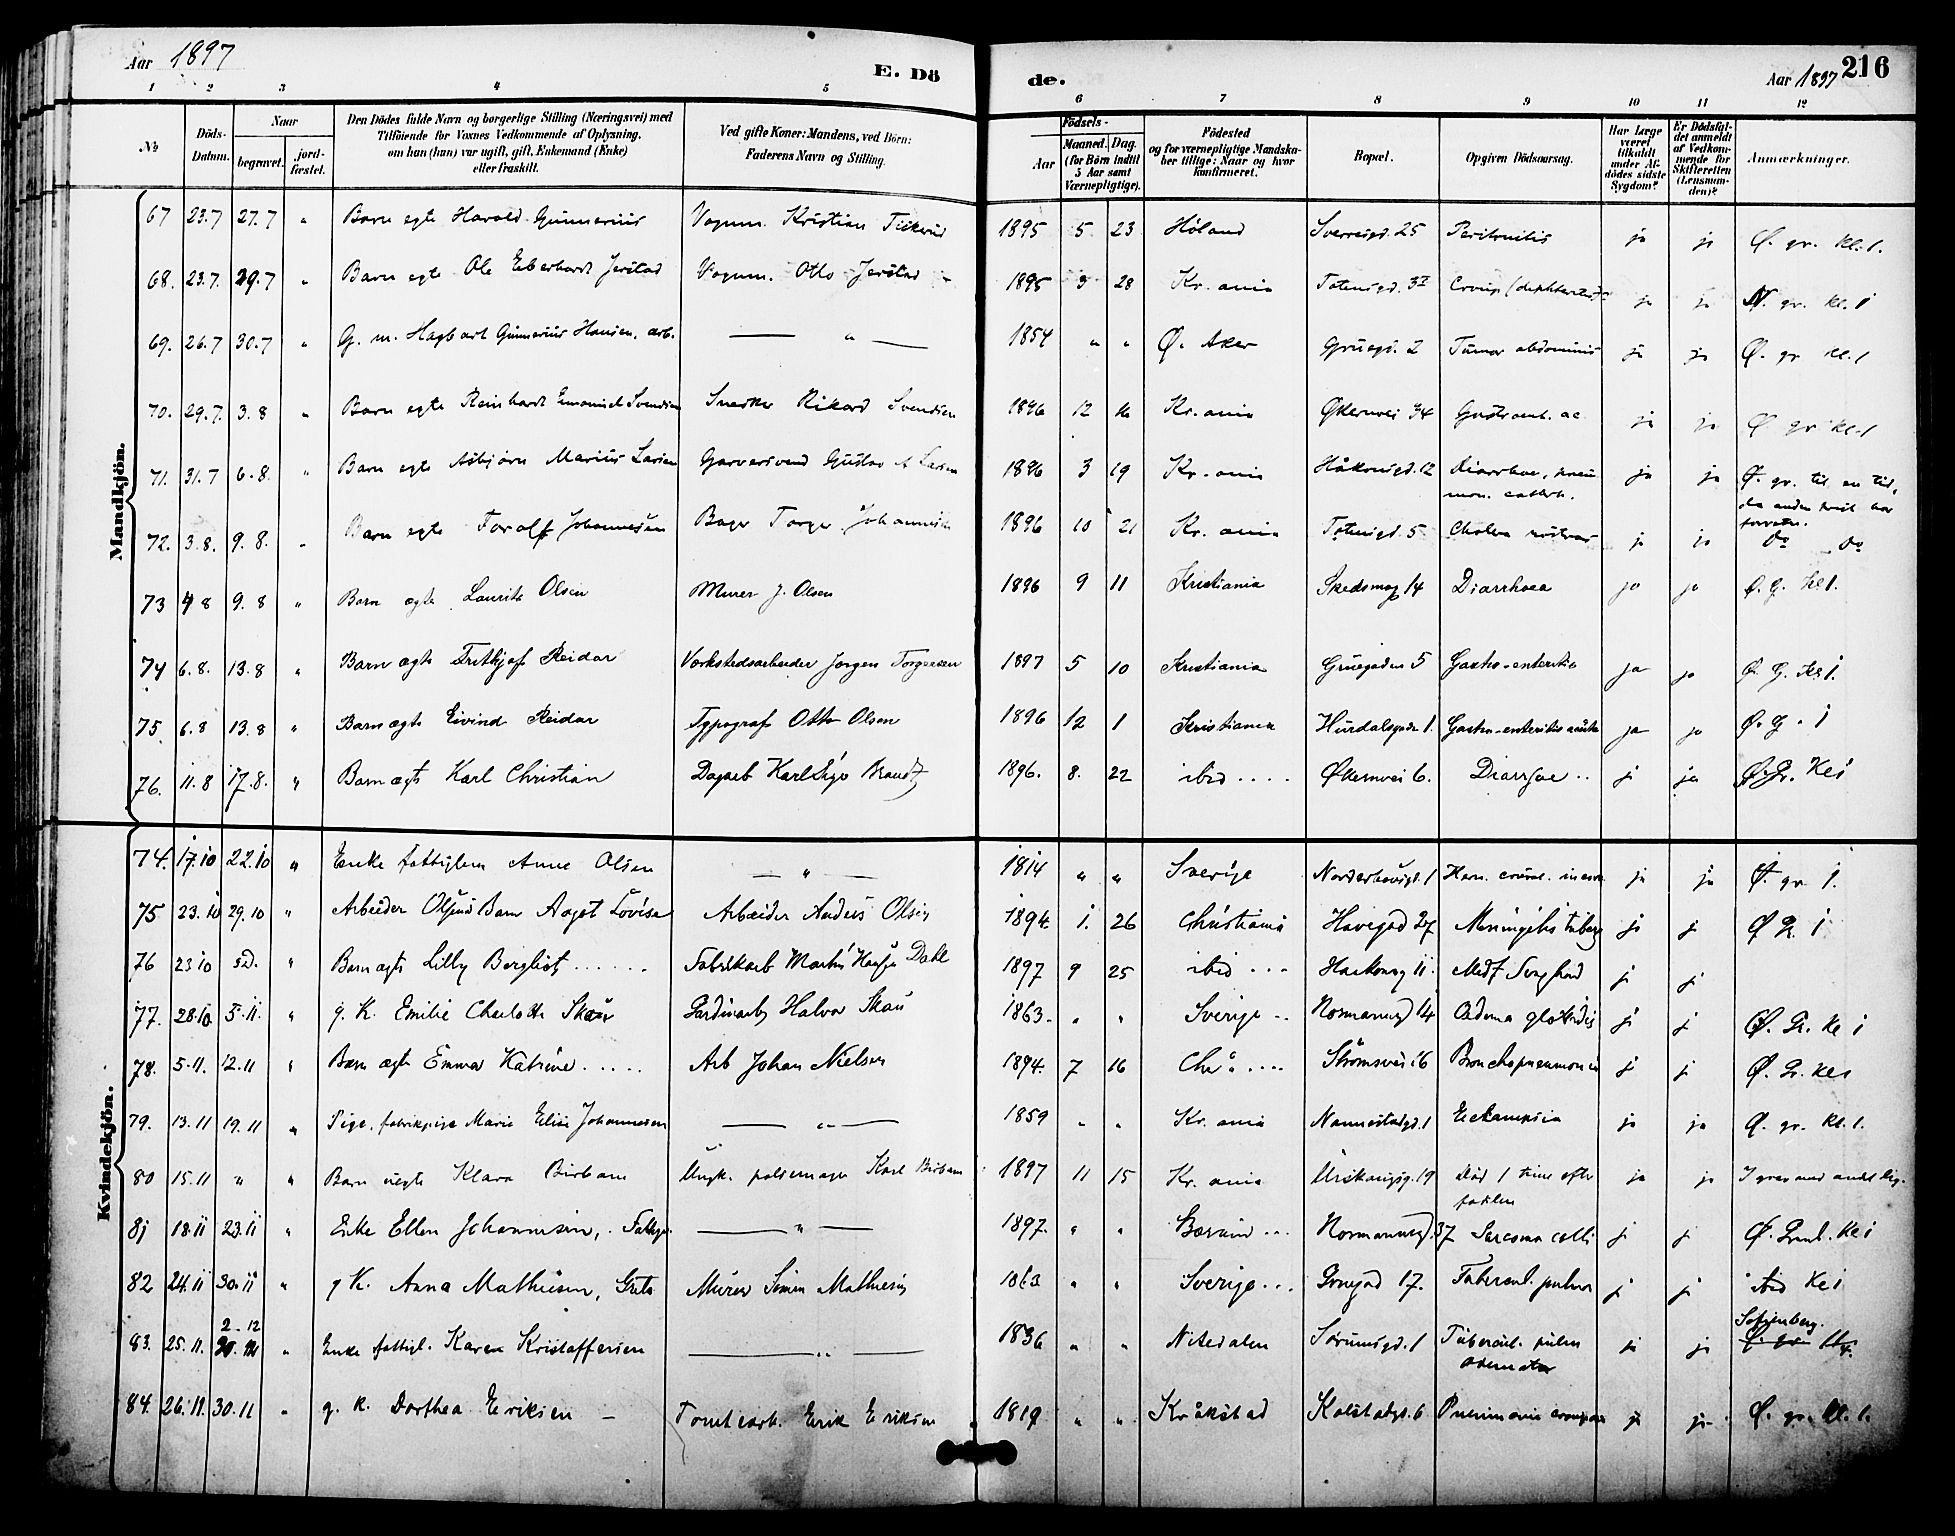 Aar 1897
E. Dö
de.
Aar 1897
216
1 2 3 4 5 6 7 8 9 10 11 12
No
Döds-Datum.
Naar
begravet.
jord-fæstet.
Den Dödes fulde Navn og borgerlige Stilling (Næringsvei) med
Tilföiende for Voxnes Vedkommende af Oplysning,
om han (hun) var ugift, gift, Enkemand (Enke)
eller fraskilt.
Ved gifte Koner: Mandens, ved Börn:
Faderens Navn og Stilling.
Födsels-
Aar
Maaned. Dag.
(for Börn indtil
5 Aar samt
Værnepligtige).
Födested
og for værnepligtige Mandska-
ber tillige: Naar og hvor
konfirmeret.
Bopæl.
Opgiven Dödsaarsag.
Har Læge
været
tilkaldt
under Af-
dödes sidste
Sygdom?
Er Dödsfal-
det anmeldt
af Vedkom-
mende for
Skifteretten
(Lensman-
den)?
Anmærkninger.
Mandkjön.
67 23.7 27.7 " Barn egte Harald Gunnerius Vognm. Kristian 1895 5 23 Høland Sverresgd. 25 Peritonitis ja ja Ø. gr. kl. 1.
68. 23.7. 29.7 " Barn egte Ole Eberhardt Jerstad Vognm. Otto Jerstad 1895 3 28 Kr. ania Totensgd. Croup ja ja N. gr. kl. 1
69. 26.7 30.7 " G. m. Hagbart Gunnerius Hansen, arb. — " — 1854 " " Ø. Aker Gruegd. 2 Tumor abdominis ja ja Ø. gr. kl. 1
70. 29.7. 3.8 " Barn egte Reinhardt Emanuel Svendsen Snedker Rikard Svendsen 1896 12 16 Kr. ania Økernvei 34 Gastroent. ac. ja ja Ø gr kl. 1
71. 31.7 6.8. " Barn egte Asbjørn Marius Larsen Garversvend Gustav A Larsen 1896 3 19 Kr. ania Håkonsgd. 12 Diarrhoe, pneu
mon. catarrh. ja ja Ø. gr. til en tid,
da anden hvil har
72. 3.8. 9.8. " Barn egte Torolf Johannesen Bager Torger Johannesen 1896 10 21 Kr. ania Totensgd. 5 Cholera nostras ja ja do do
73 4 8 9.8 " Barn ægte Laurits Olsen Murer J. Olsen 1896 9 11 Kristiania Skedsmog 14 Diarrhoea ja ja Ø. G. kl 1.
74 6.8. 13.8 " Barn ægte Frithjof Reidar Værkstedsarbeider Jørgen Torgersen 1897 5 10 Kristiania Gruegaden 5 Gastro-enteritis ja ja Ø. G. kl 1.
75 6.8 13.8 " Barn ægte Eivind Reidar Typograf Otto Olsen 1896 12 1 Kristiania Hurdalsgaden 1. Gastro-enteritis acuta ja ja Ø. G. " 1
76. 11.8 17.8. " Barn ægte Karl Christian Dagarb Karl Brandt 1896. 8. 22 ibid .... Økernvei 6. Diarrhoe .. ja ja Ø. Gr. Kl 1
Kvindekjön.
74. 17.10 22.10 " Enke fattiglem Anne Olsen — " — 1814 " " Sverige Norderhovsgd. 1 Hern. crural. incarc. ja ja Ø. gr. 1.
75 23.10 29.10 " Arbeider Barn Aagot Lovise Arbeider Anders Olsen 1894. 1. 26 Christiania Havegad 27 Meningitis ja ja Ø Gr. 1
76 23 10 " Barn ægte Lilly Bergliot ...... Fabrikarb Dahl 1897 9 25 ibid ... Haakonsg 11. Medf ja ja
77. 28.10. 5.11. " g. K. Emilie Charlotte Skau Halvor Skau 1863. " " Sverige .. Normannsgd 14 Oedema glottidis ja ja Ø. Gr. Kl 1
78. 5.11. 12.11 " Barn ægte Emma Katrine ..... Arb Johan Nielsen 1894. 7 16 Chra .... Strømsvei 16 Bronchopneumonia ja ja Ø. Gr. Kl 1
79. 13.11 19.11 " Pige, fabrikpige Marie Elise Johannesen — " — 1859 " " Kr. ania Nannestadgd. 1 Eclampsia ja ja Ø. gr. kl. 1.
80 15.11 " " Barn uegte Klara Birbam Ungk. Karl Birbam 1897 11 15 Kr. ania Urskougsg. 19 Død 1 time efter
fødslen ja ja I grav med andet lig.
81 18.11 23.11 " Enke Ellen Johannesen, — " — 1897. " " Bærum ... Normannsgd. 37 Sarcoma colli ja ja Ø. Gravl. Kl 1
82 24.11 30.11 " g K. Anna Mathiesen, Murer Simen Mathiesen 1863 " " Sverige ... Gruegad 17. Tubercul. pulm ja ja ibid Kl 1
83. 25.11. 2-12 " Enke fattigl. Karen Kristoffersen — " — 1836 " " Nitedalen Sørumsgd. 1 Tubercul. pulm ja ja Sofienberg.
84. 26.11. 30.11 " g. k. Dorthea Eriksen — Tomtearb. Erik Eriksen 1819 " " Kråkstad Kolstadgt. 6 Pneumonia crouposa ja ja Ø. gr. kl. 1.